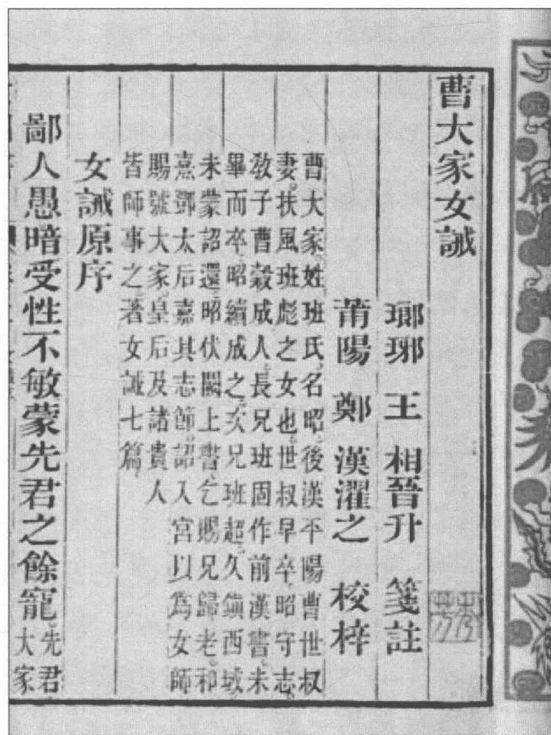 曹大家女誡
瑯琊 王 相晉升 箋註
莆陽 鄭 漢濯之 校梓
曹大家。姓班氏。名昭。後漢平陽曹世叔
妻。扶風班彪之女也。世叔早卒。昭守志。
敎子曹穀成人。長兄班固作前漢書。未
畢而卒。昭續成之。次兄班超。久鎭西域。
未蒙詔還。昭伏闕上書。乞賜兄歸老。和
熹鄧太后嘉其志節。詔入宮以爲女師。
賜號大家。皇后及諸貴人
皆師事之。著女誡七篇。
女誡原序
鄙人愚暗受性不敏蒙先君之餘寵。先君。大家